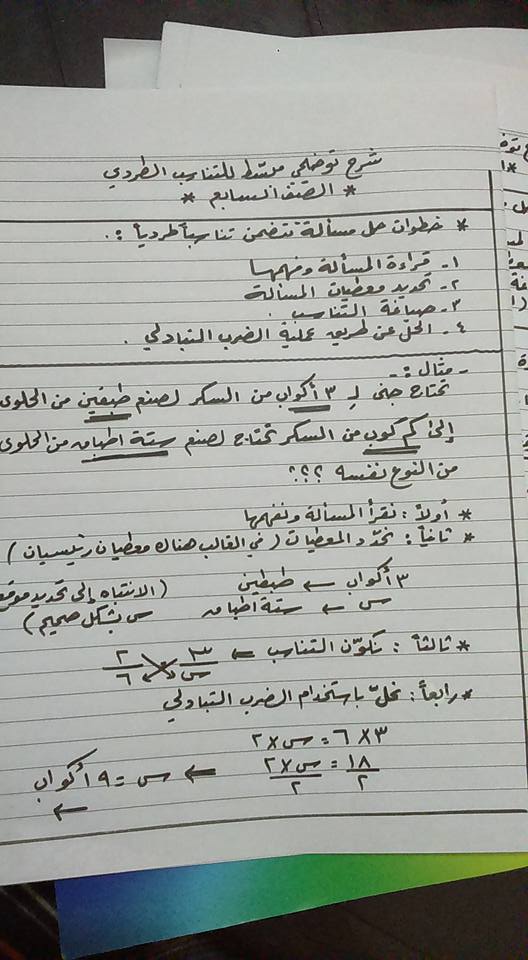 شرح توضيحي مبسّط للتناسب الطردي
* الصف السابع *
* خطوات حل مسألة تتضمن تناسباً طردياً :.
١- قراءة المسألة وفهمها
٢- تحديد معطيات المسألة
٣- صياغة التناسب .
٤- الحل عن طريق عملية الضرب التبادلي .
- مثال :-
تحتاج جنى لـ ٣ أكواب من السكر لصنع طبقين من الحلوى
إلى كم كوب من السكر تحتاج لصنع ستة أطباق من الحلوى
من النوع نفسه ؟؟؟
* أولاً : نقرأ المسألة ونفهمها
* ثانياً : نحدّد المعطيات ( في القالب هناك معطيان رئيسيان )
٣ أكواب ← طبقين (الانتباه إلى تحديد موقع
س ← ستة أطباق س بشكل صحيح )
* ثالثاً : نكوّن التناسب ← ٣/س = ٢/٦
* رابعاً : نحلّ باستخدام الضرب التبادلي
٣ × ٦ = س × ٢
١٨/٢ = س × ٢/٢ ← س = ٩ أكواب
←